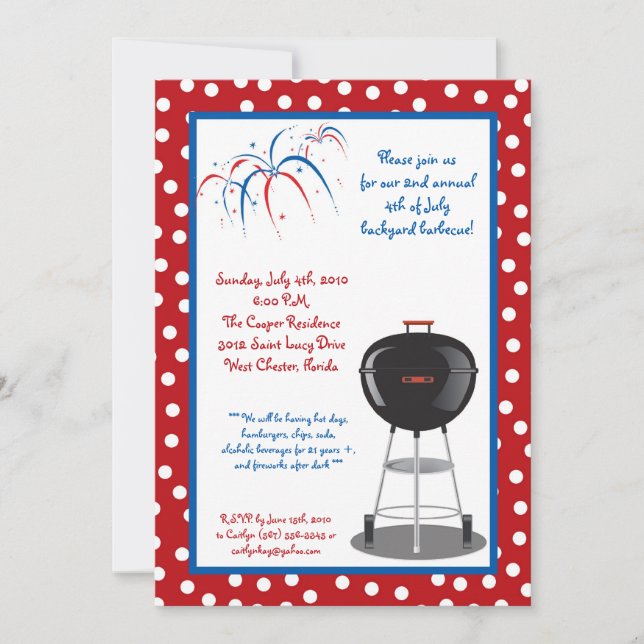 Please join us
for our 2nd annual
4th of July
backyard barbecue!
Sunday, July 4th, 2010
6:00 P.M.
The Cooper Residence
3012 Saint Lucy Drive
West Chester, Florida
***We will be having hot dogs,
hamburgers, chips, soda,
alcoholic beverages for 21 years +,
and fireworks after dark***
R.S.V.P. by June 15th, 2010
to Caitlyn (567) 556-3345 or
caitlynkay@yahoo.com